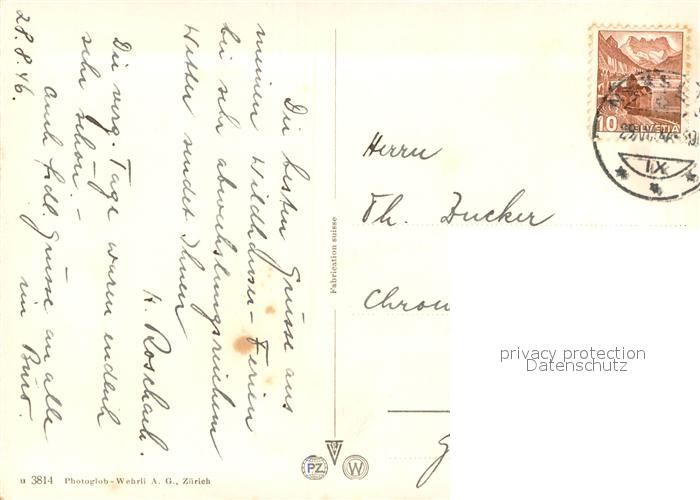 Die besten Grüsse aus
meinen Wildhauser-Ferien
bei sehr abwechslungsreichem
Wetter sendet Ihnen
H. Roschach.
Die verg. Tage waren endlich
sehr schön. -
Auch frdl. Grüsse an alle
im Büro.
28. 8. 46.
Herrn
Th. Zucker
Chron
Fabrication suisse
10
HELVETIA
IX
PZ
W
u 3814 Photoglob-Wehrli A. G., Zürich
privacy protection
Datenschutz